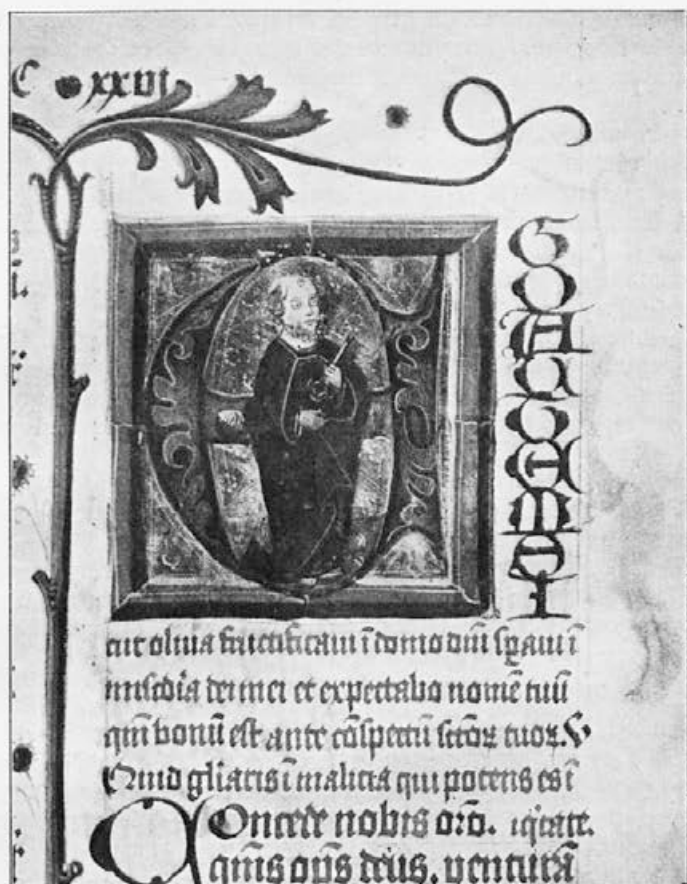 C xxvi
E
G
O
A
U
T
E
M
S
I
cut oliua fructificaui ī domo dn̄i sꝑaui ī
miscd̄ia dei mei et expectabo nomē tuū
qm̄ bonū est ante cōspectū sctoꝝ tuoꝝ. V
Quid gl̄iaris ī malicia qui potens es ī
Concede nobis oro. iq̄tate.
qm̄s op̄s deus. venturā